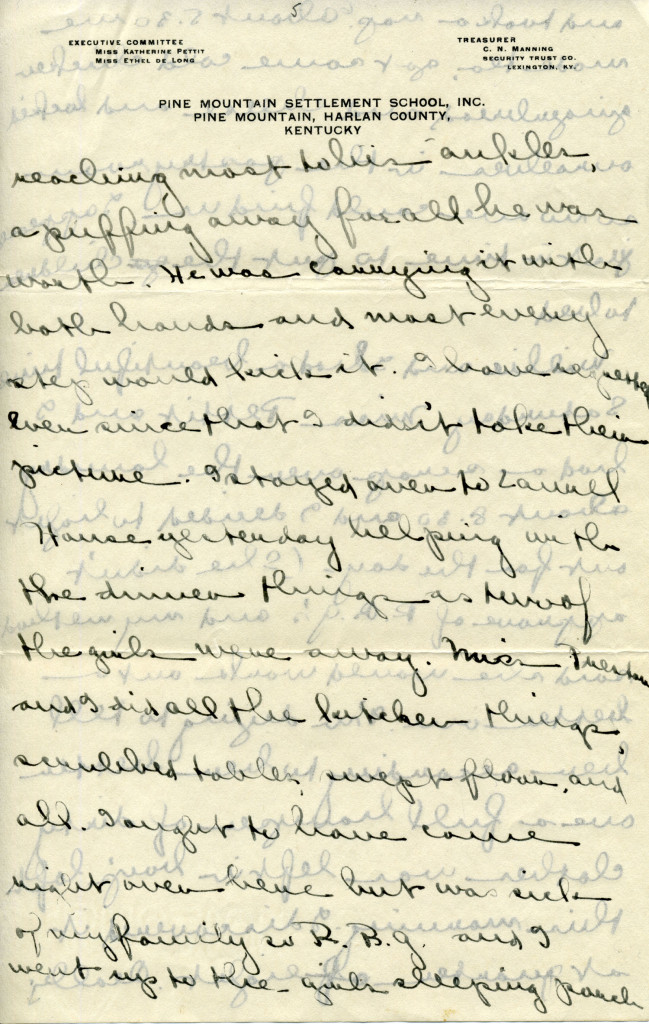 5
EXECUTIVE COMMITTEE
MISS KATHERINE PETTIT
MISS ETHEL DE LONG
TREASURER
C. N. MANNING
SECURITY TRUST CO.
LEXINGTON, KY.
PINE MOUNTAIN SETTLEMENT SCHOOL, INC.
PINE MOUNTAIN, HARLAN COUNTY,
KENTUCKY
reaching most to his ankles,
a puffing away for all he was
worth. He was carrying it with
both hands and most every
step would kick it. I have regretted
ever since that I didn't take their
picture. I stayed over to Laurell
House yesterday helping with
the dinner things as two of
the girls were away. Miss
and I did all the kitchen things,
scrubbed tables, swept floor, and
all. I ought to have come
right over here but was sick
of my family so R. B. G. and I
went up to the girls sleeping porch